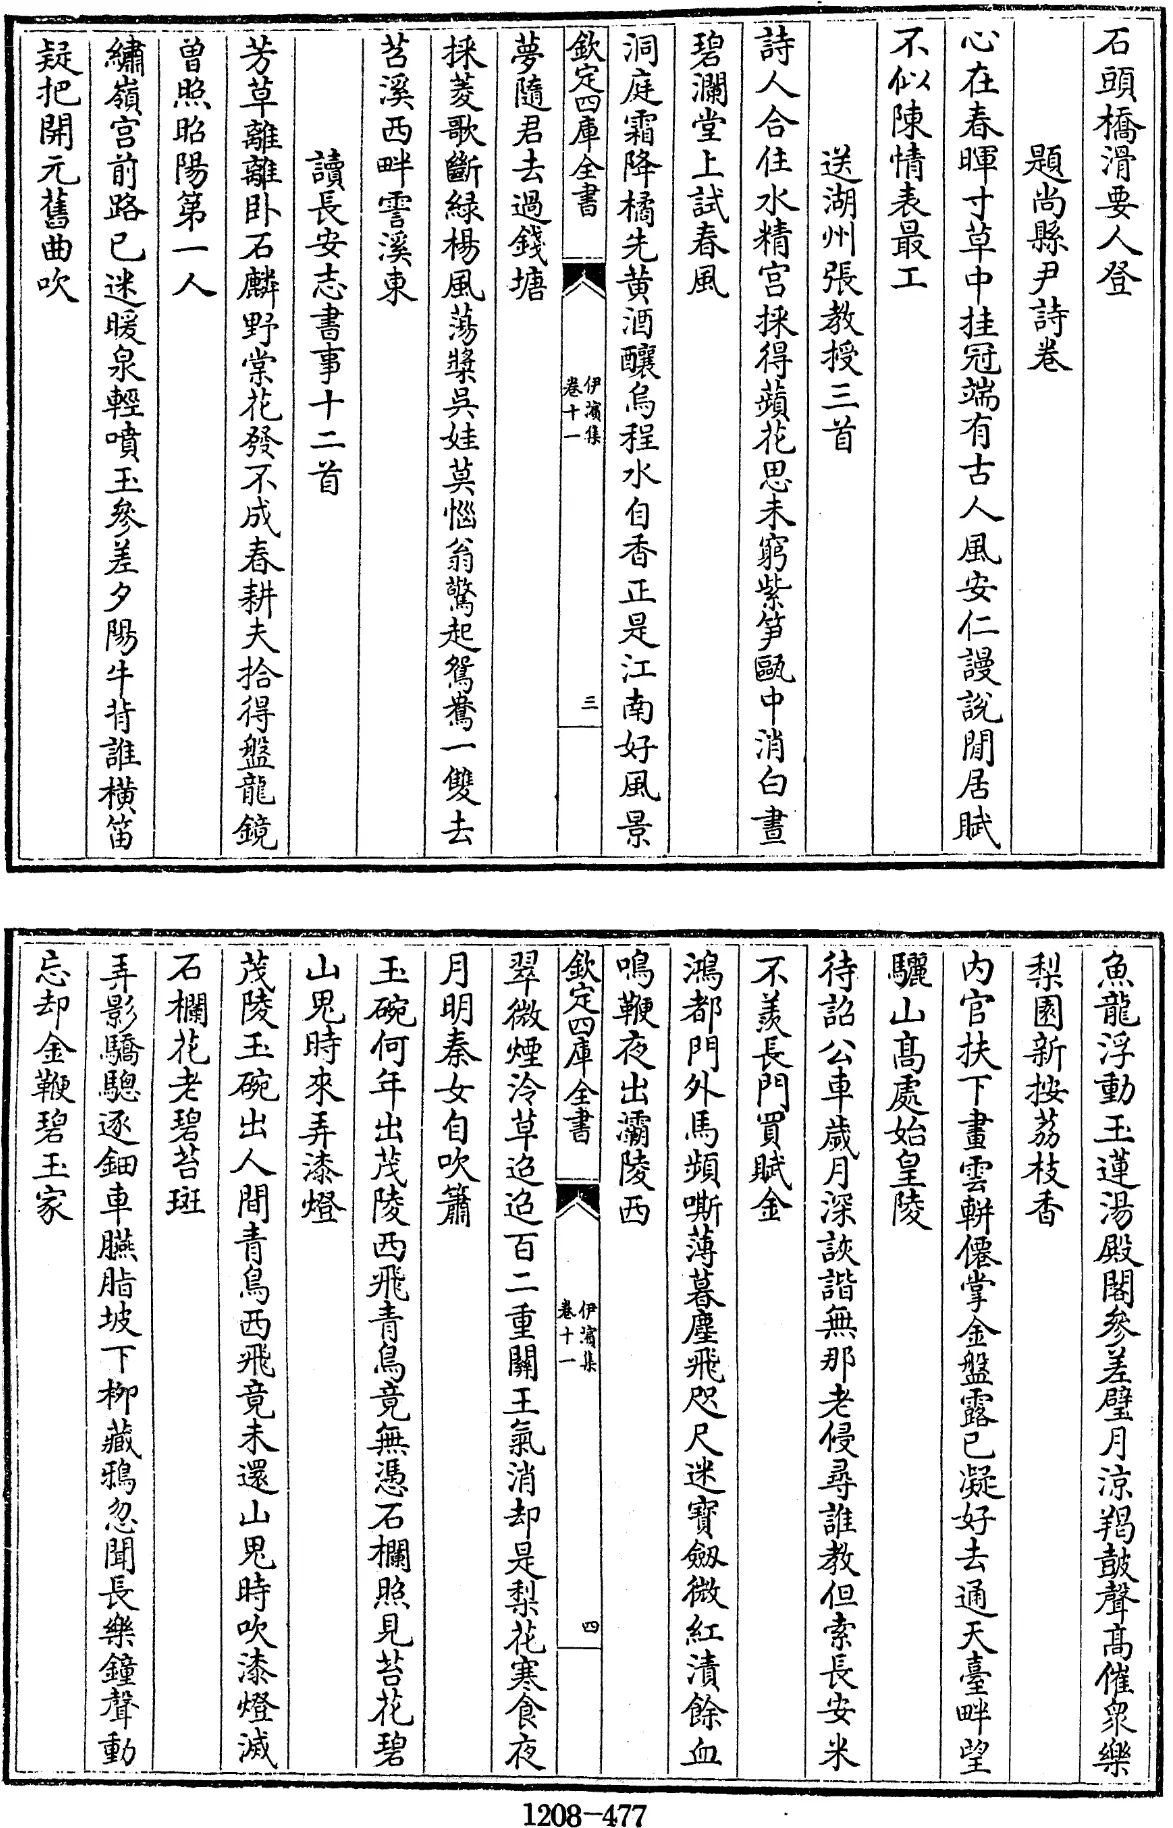 石頭橋滑要人登
題尚縣尹詩卷
心在春暉寸草中挂冠端有古人風安仁謾說閒居賦
不似陳情表最工
送湖州張教授三首
詩人合住水精宮採得蘋花思未窮紫筍甌中消白晝
碧瀾堂上試春風
洞庭霜降橘先黄酒釀烏程水自香正是江南好風景
欽定四庫全書
伊濱集
卷十一
三
夢隨君去過錢塘
採菱歌斷緑楊風蕩槳吳娃莫惱翁驚起鴛鴦一雙去
苕溪西畔霅溪東
讀長安志書事十二首
芳草離離卧石麟野棠花發不成春耕夫拾得盤龍鏡
曾照昭陽第一人
繡嶺宫前路已迷暖泉輕噴玉參差夕陽牛背誰橫笛
疑把開元舊曲吹
魚龍浮動玉蓮湯殿閣參差璧月涼羯鼓聲高催衆樂
梨園新按荔枝香
内官扶下畫雲輧僊掌金盤露已凝好去通天臺畔望
驪山髙處始皇陵
待詔公車歲月深詼諧無那老侵尋誰教但索長安米
不羨長門買賦金
鴻都門外馬頻嘶薄暮塵飛咫尺迷寶劔微紅漬餘血
鳴鞭夜出灞陵西
欽定四庫全書
伊濱集
卷十一
四
翠微煙冷草迢迢百二重關王氣消却是梨花寒食夜
月明秦女自吹簫
玉碗何年出茂陵西飛青鳥竟無憑石欄照見苔花碧
山鬼時來弄漆燈
茂陵玉碗出人間青鳥西飛竟未還山鬼時吹漆燈滅
石欄花老碧苔斑
弄影驕驄逐鈿車臙脂坡下柳藏鴉忽聞長樂鐘聲動
忘却金鞭碧玉家
1208-477